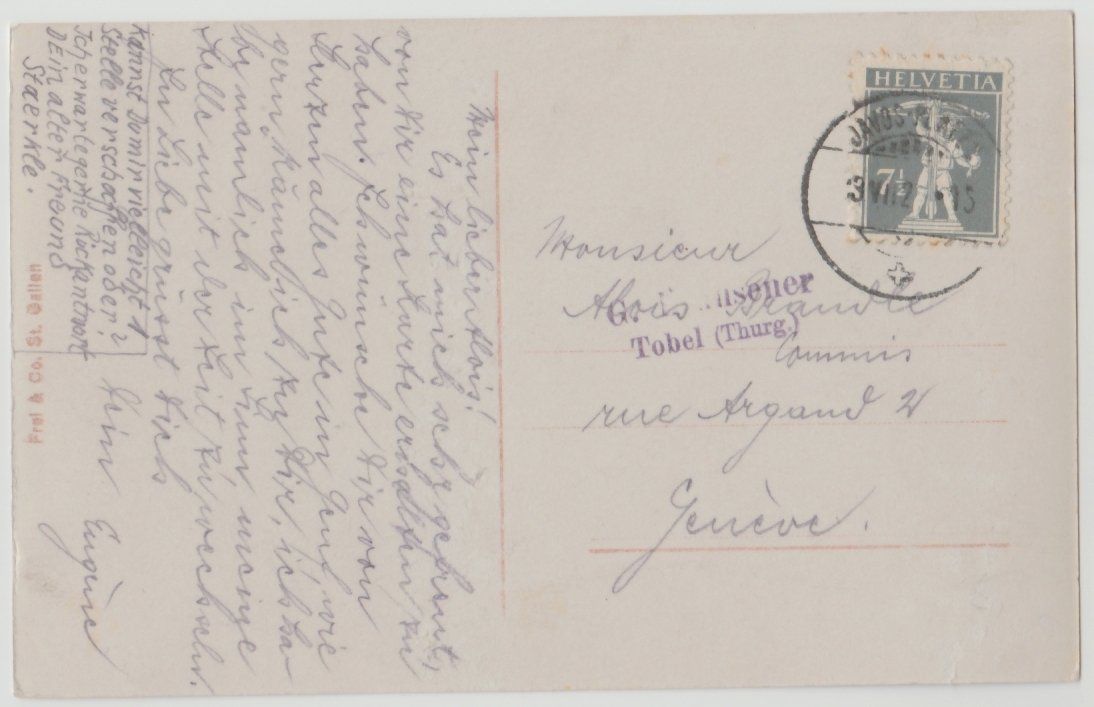 Mein lieber Alois!
Es hat mich sehr gefreut,
von dir eine Karte erhalten zu
haben. Ich wünsche dir von
Herzen alles Gute in Genf, wie
gern käme ich zu dir, ich ha-
be nämlich im Sinn, meine
Stelle mit der Zeit zu wechseln.
In Liebe grüsst dich
Dein
Eugène
Kannst Du mir vielleicht 1
Stelle verschaffen oder?
Ich erwarte gerne Rückantwort
DEin alter Freund
Staerkle.
Frei & Co. St. Gallen
HELVETIA
7½
DAVOS-PLATZ
Monsieur
Aloïs Brändle
Commis
rue Argand 2
Genève.
Tobel (Thurg.)